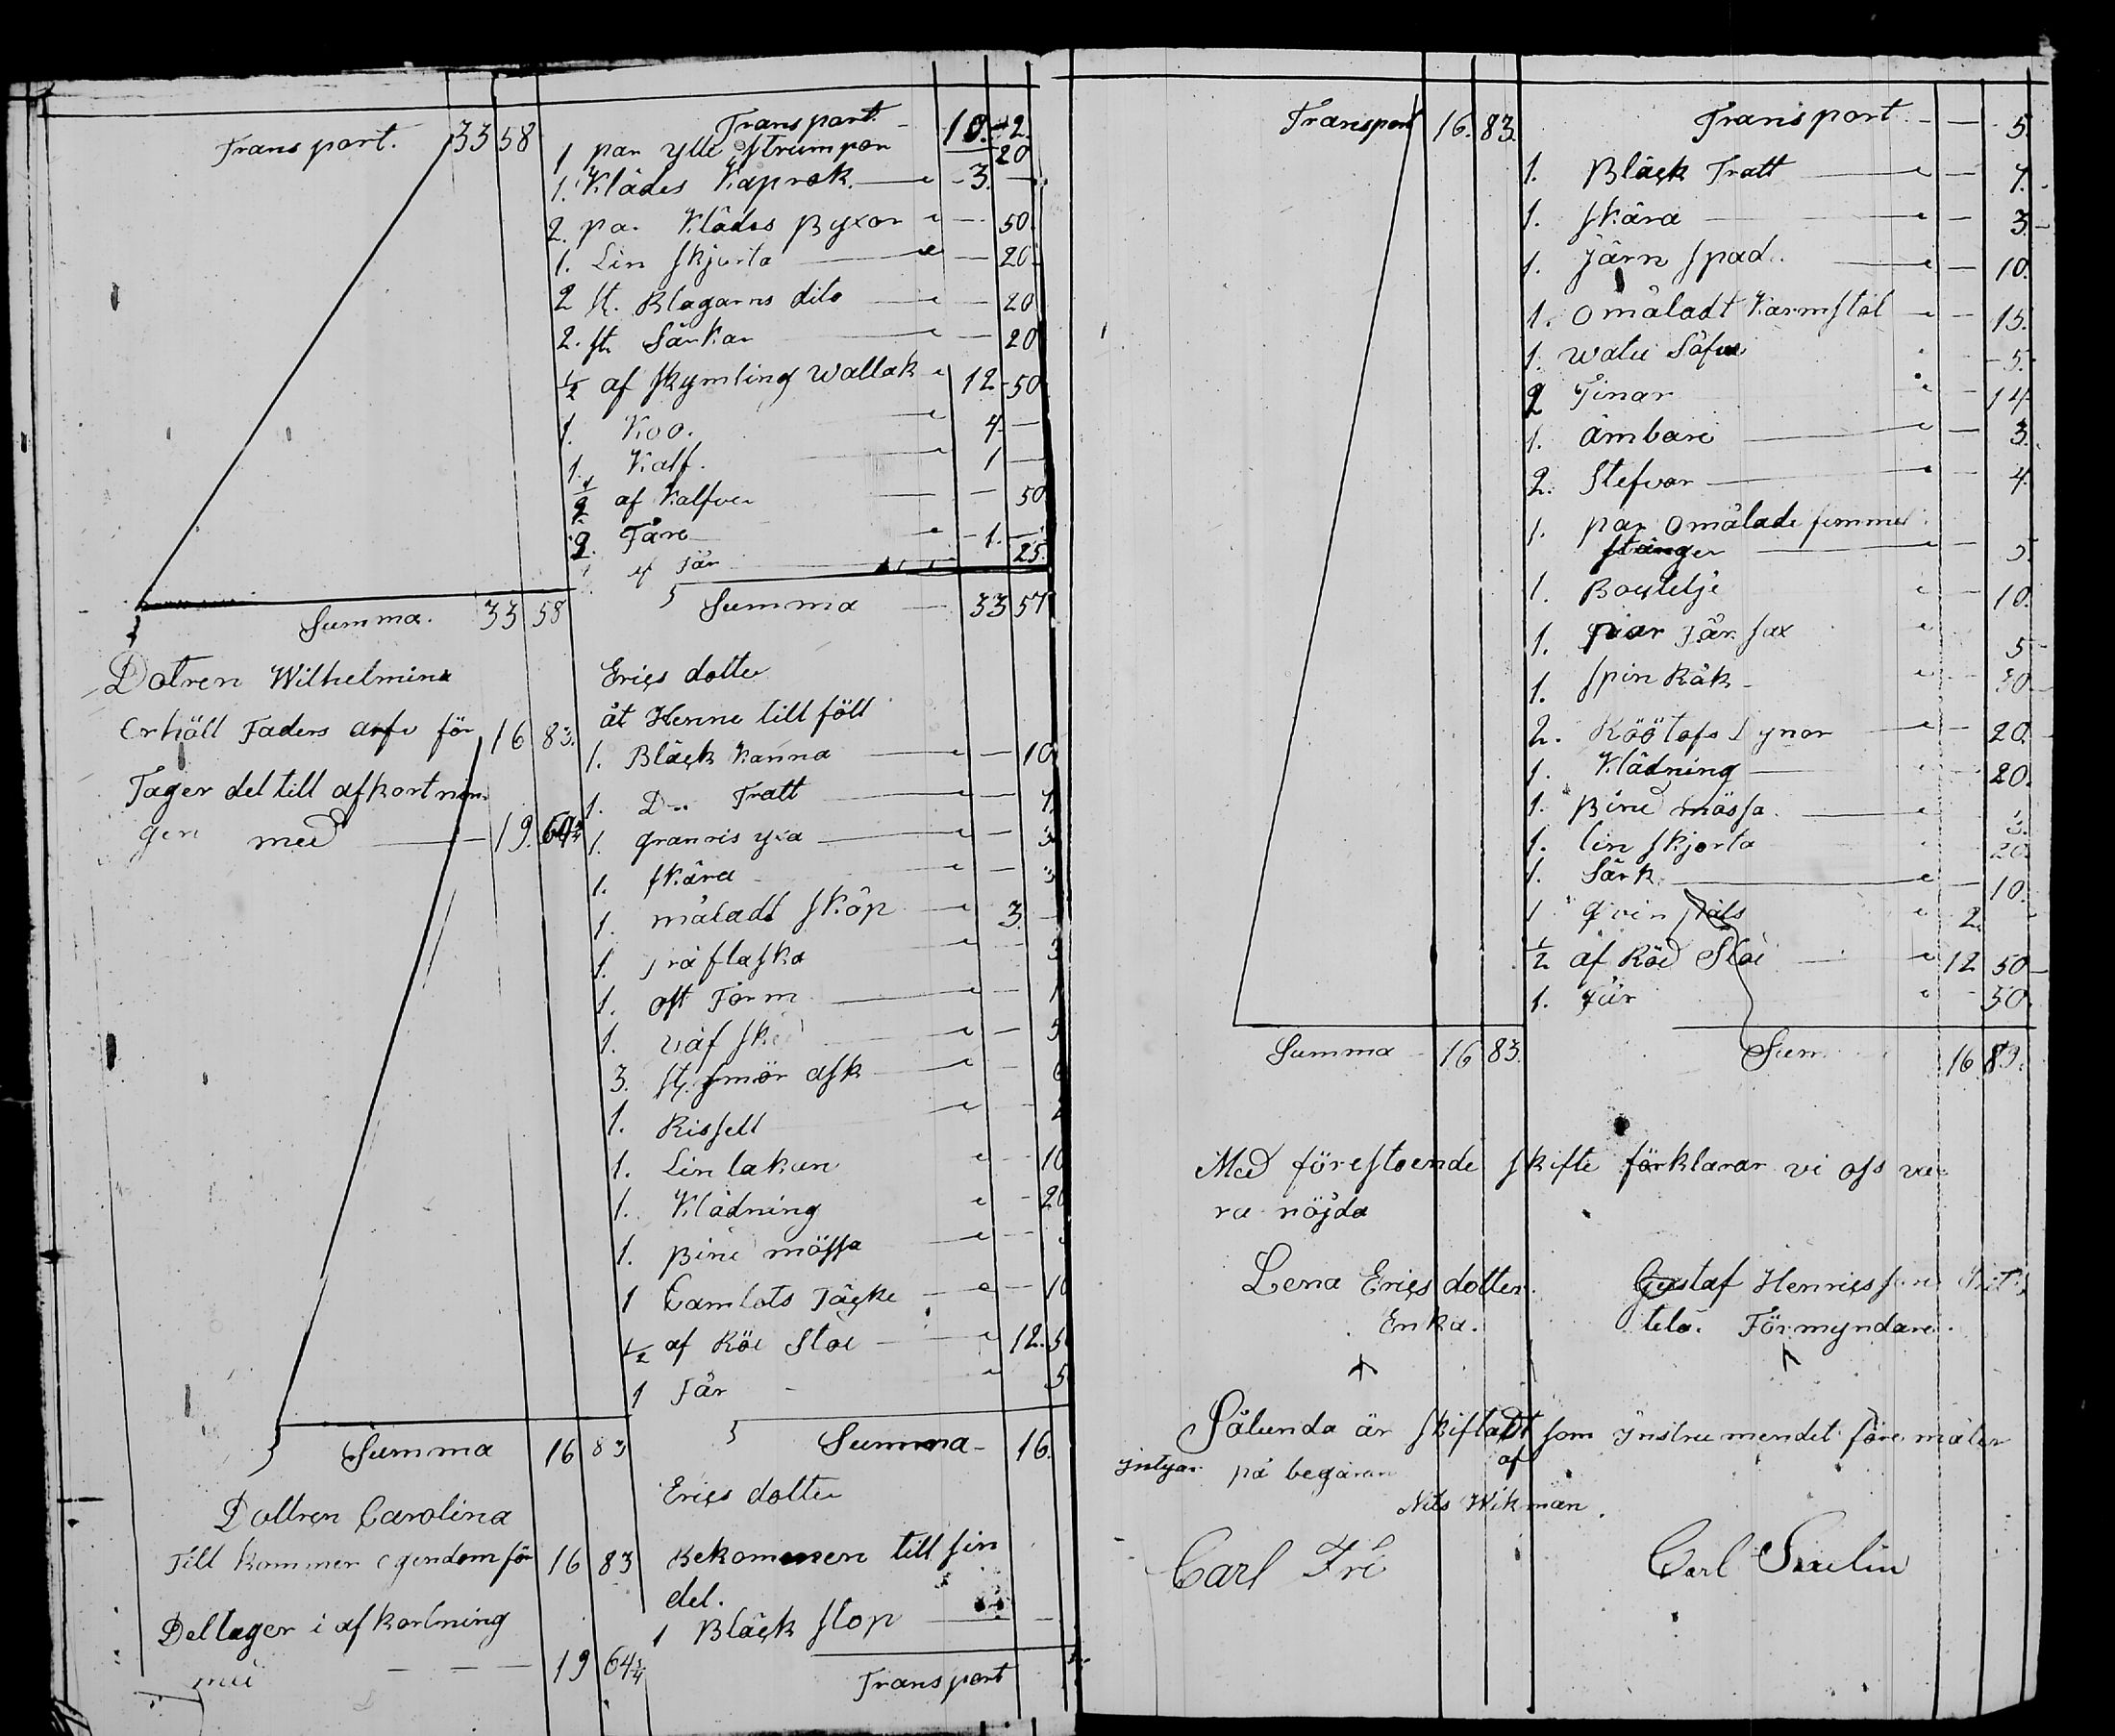 Transport. 33 58
Transport. 10. 42.
1 par ylle strumpor 20
1. Klädes Kaprok. 3. —
2. pa. Klädes Byxor 50.
1. Lin skjorta 20.
2 st. Blagarns dito 20
2. st. Särkar 20
1/2 af skymling wallak 12 50
1. Koo. 4 —
1. Kalf. 1 —
1/2 af Kalfven 50
2. Fåre 1. —
af Får 25.
Summa. 33 58
Summa 33 57
Dotren Wilhelmina
Erics dotter
Erhåll Faders arfe för 16 83.
åt Henne till föll
Tager del till afkortnin
gen med 19. 64 3/4
1. Bläck Kanna 10
1. D.. Tratt 7
1. granris yxa 3
1. skära 3
1. måladt skåp 3. —
1. Trä flaska 3
1. ost Form 1
1. väf sked 5
3. st. smör ask 6
1. Rissell 2
1. Lin lakan 10
1. Klädning 20
1. Bine mössa
1 Camlots Täcke 10
1/2 af Röe Stoe 12. 50
1 Får 5
Summa 16 83
Summa 16.
Dottren Carolina
Erics dotter
Till kommer egendom för 16 83
Bekommen till sin
del.
Deltager i afkortning
med 19 64 3/4
1 Bläck stop
Transport
Transport 16. 83.
Transport 5
1. Bläck Tratt 7.
1. skära 3
1. Järn spad. 10.
1. omåladt Karmstol 15.
1. watu Såfue 5.
2 Tinar 14
1. ämbare 3.
2. Stefvar 4
1. par omålade fimmel
stänger 5.
1. Bouteljé 10.
1. par Får sax 5
1. spin Råk
2. Röötofs Dynor 20.
1. Klädning 20.
1. Bine mössa.
1. lin skjorta 20
1. Särk 10.
1 qvin päls 2.
1/2 af Röe Stoe 12 50
1. Får 50.
Summa 16 83.
Sum 16 83.
Med förestående skifte förklarar vi oss va
ra nöjda
Lena Erics dotter.
Enka.
Gustaf Henricsson
Förmyndare.
Sålunda är skiftadt som instrumendet föremäler
intyar på begäran af
Nils Wikman.
Carl Fri
Carl Saelin